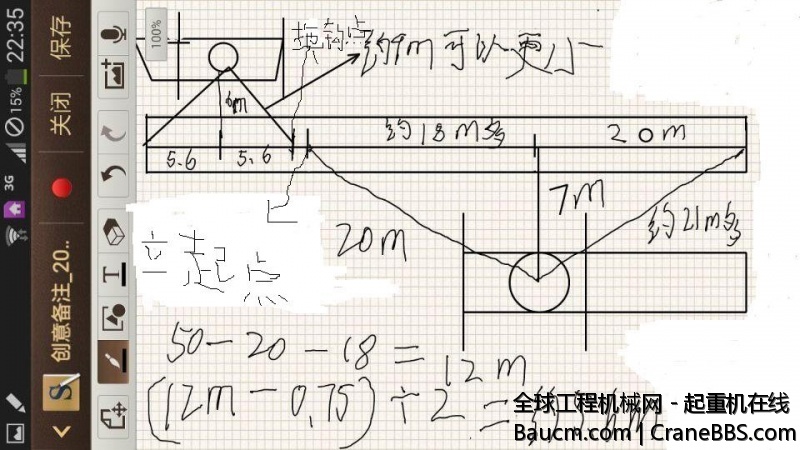 22:35
15%
3G
保存
关闭
创意备注_20..
100%
拖钩点
约9m可以更小一
6m
5.6
5.6
约18m多
20m
7m
20m
约21m多
立起点
50-20-18=12m
(12m-0.75)÷2=约5.6m
全球工程机械网 - 起重机在线
Baucm.com | CraneBBS.com